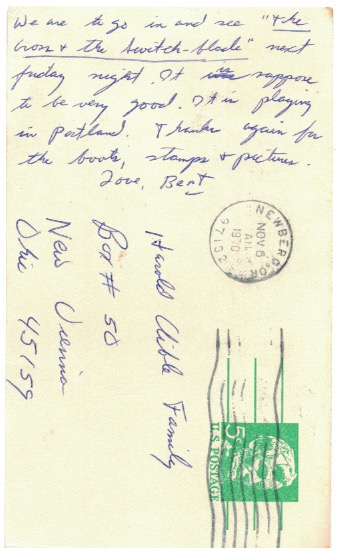 We are to go in and see "the
Cross & the Switch-blade" next
friday night. It is suppose
to be very good. It is playing
in Portland. Thanks again for
the books, stamps & pictures.
Love, Bert
Harold Aible Family
Box # 50
New Vienna
Ohio 45159
NEWBERG, OR
NOV 6
1970
97132
5¢
U.S. POSTAGE